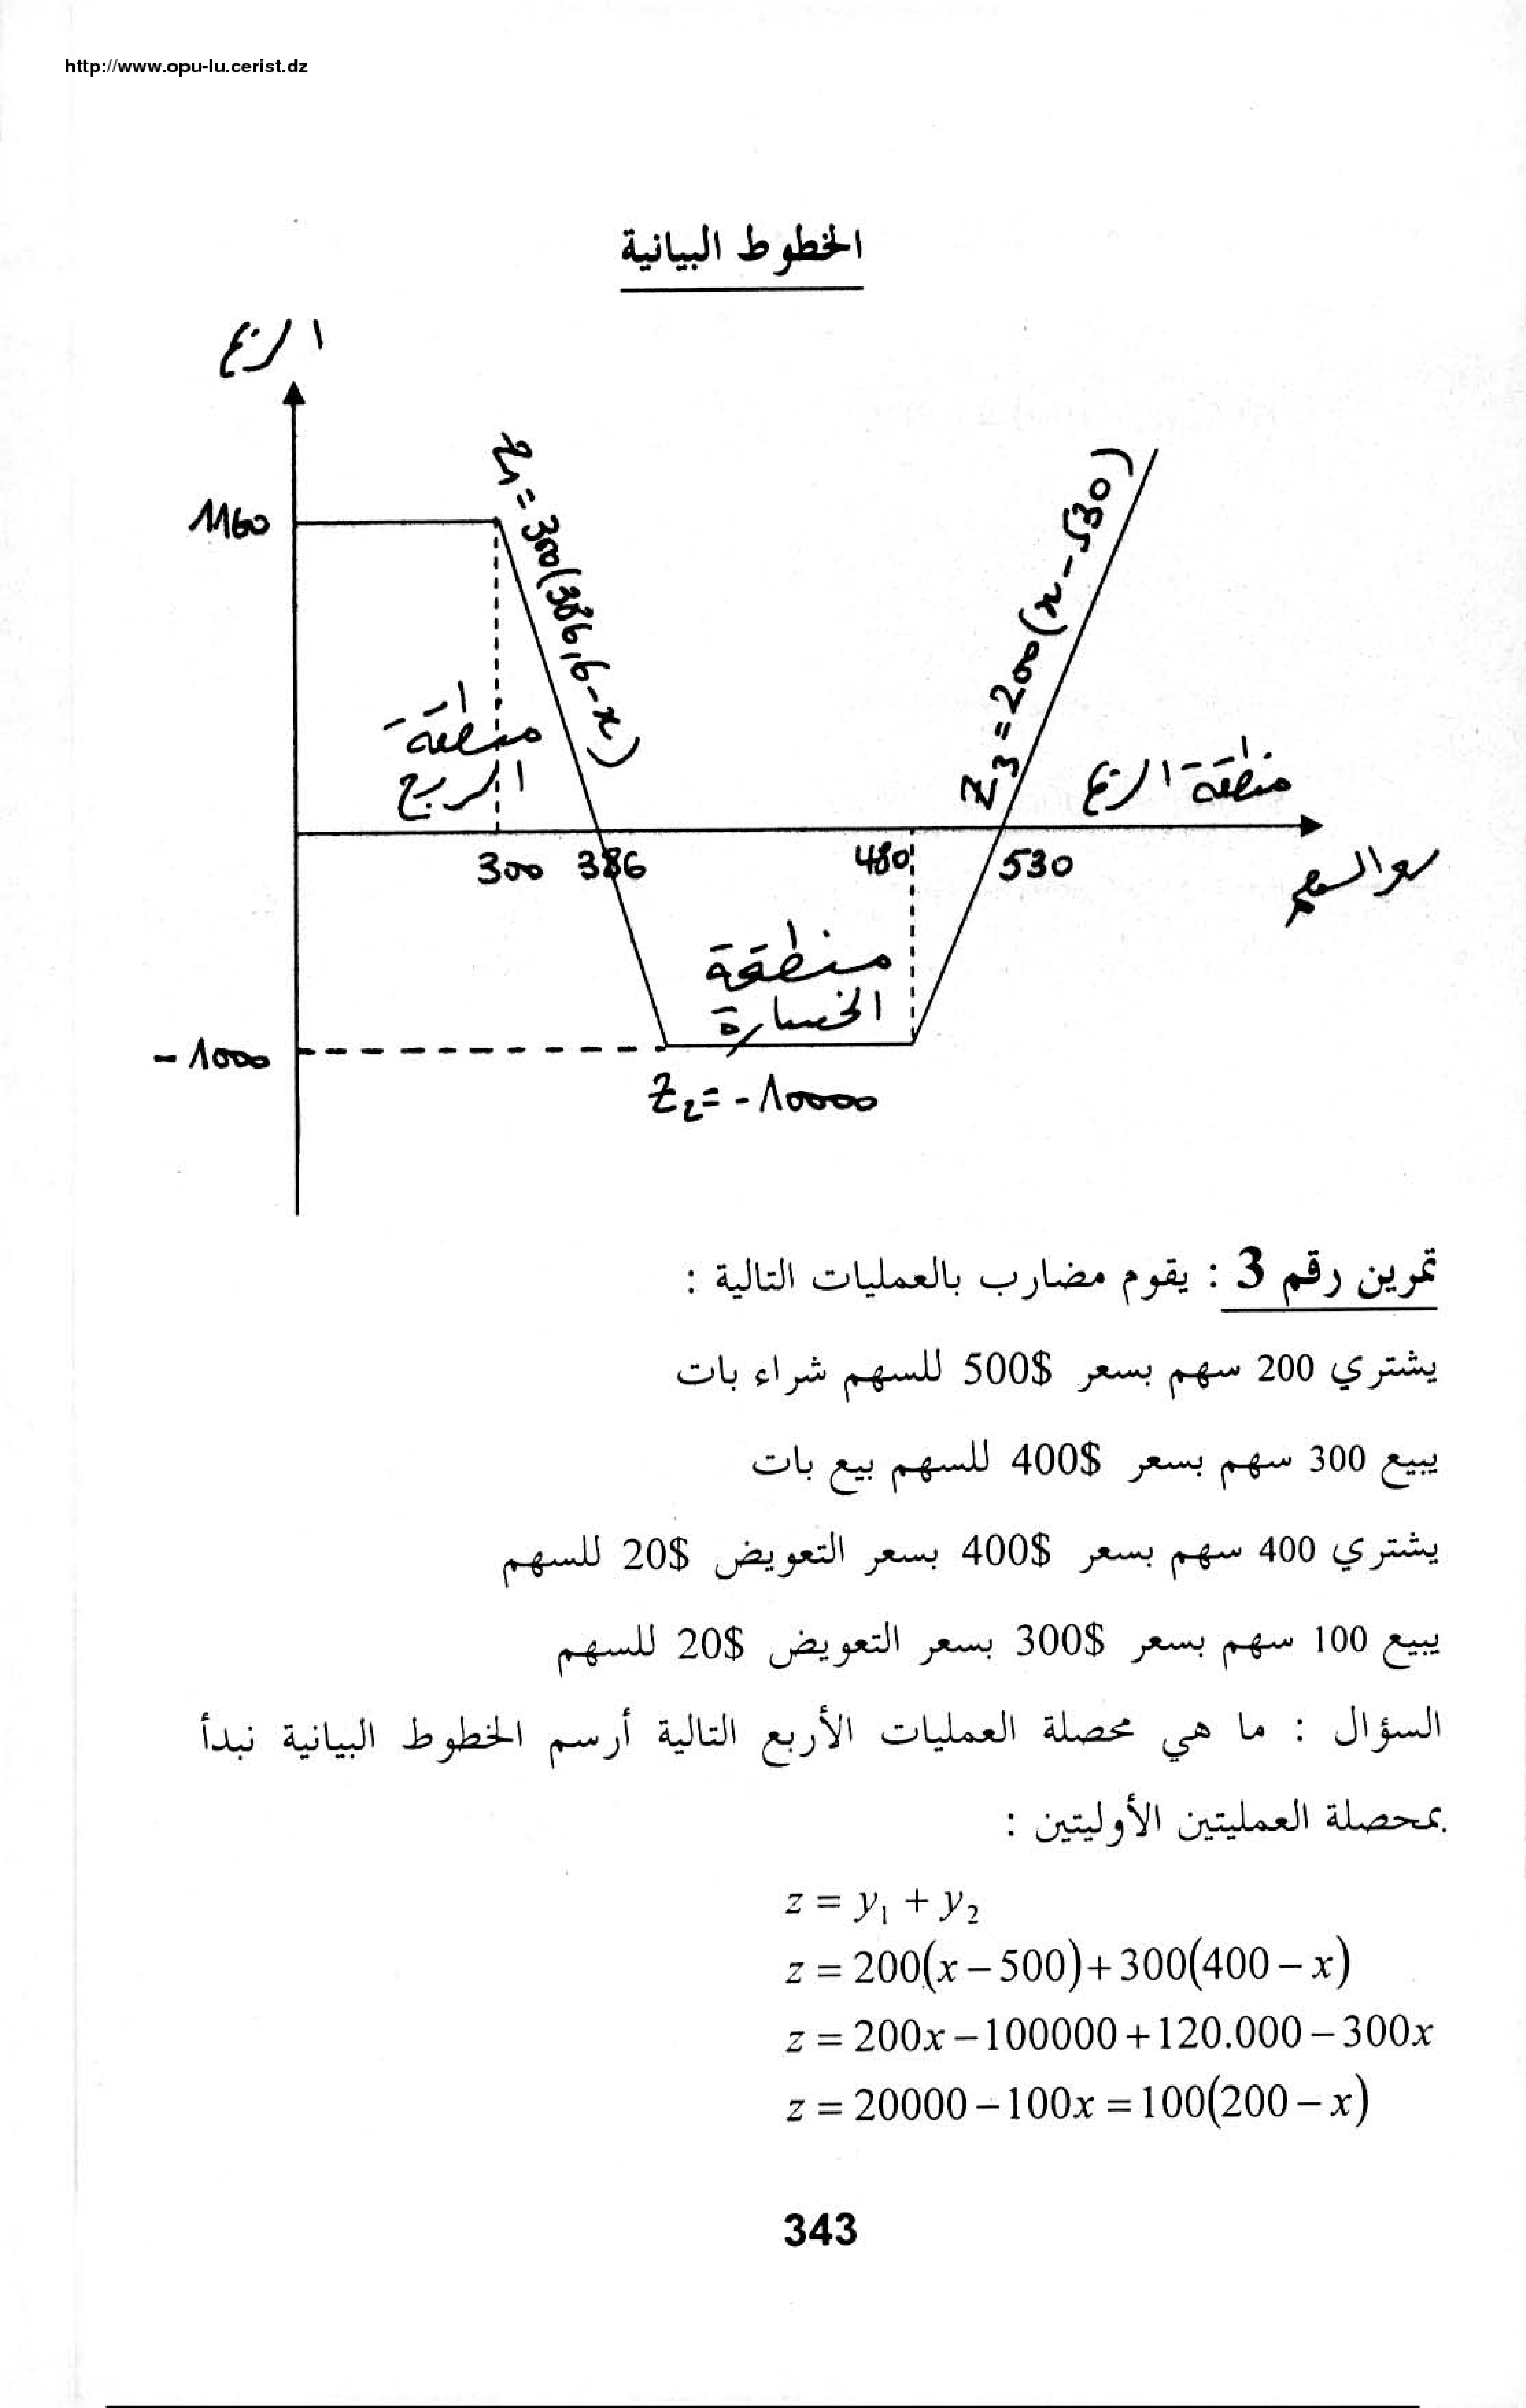 http://www.opu-lu.cerist.dz
الخطوط البيانية
الربح
1160
z₁ = 300(386,6-x)
z₃ = 200(x-530)
منطقة
الربح
منطقة الربح
300
386
480
530
سعر السهم
منطقة
الخسارة
-1000
z₂ = -10000
تمرين رقم 3 : يقوم مضارب بالعمليات التالية :
يشتري 200 سهم بسعر $500 للسهم شراء بات
يبيع 300 سهم بسعر $400 للسهم بيع بات
يشتري 400 سهم بسعر $400 بسعر التعويض $20 للسهم
يبيع 100 سهم بسعر $300 بسعر التعويض $20 للسهم
السؤال : ما هي محصلة العمليات الأربع التالية أرسم الخطوط البيانية نبدأ
بمحصلة العمليتين الأوليتين :
z = y₁ + y₂
z = 200(x – 500) + 300(400 – x)
z = 200x – 100000 + 120.000 – 300x
z = 20000 – 100x = 100(200 – x)
343